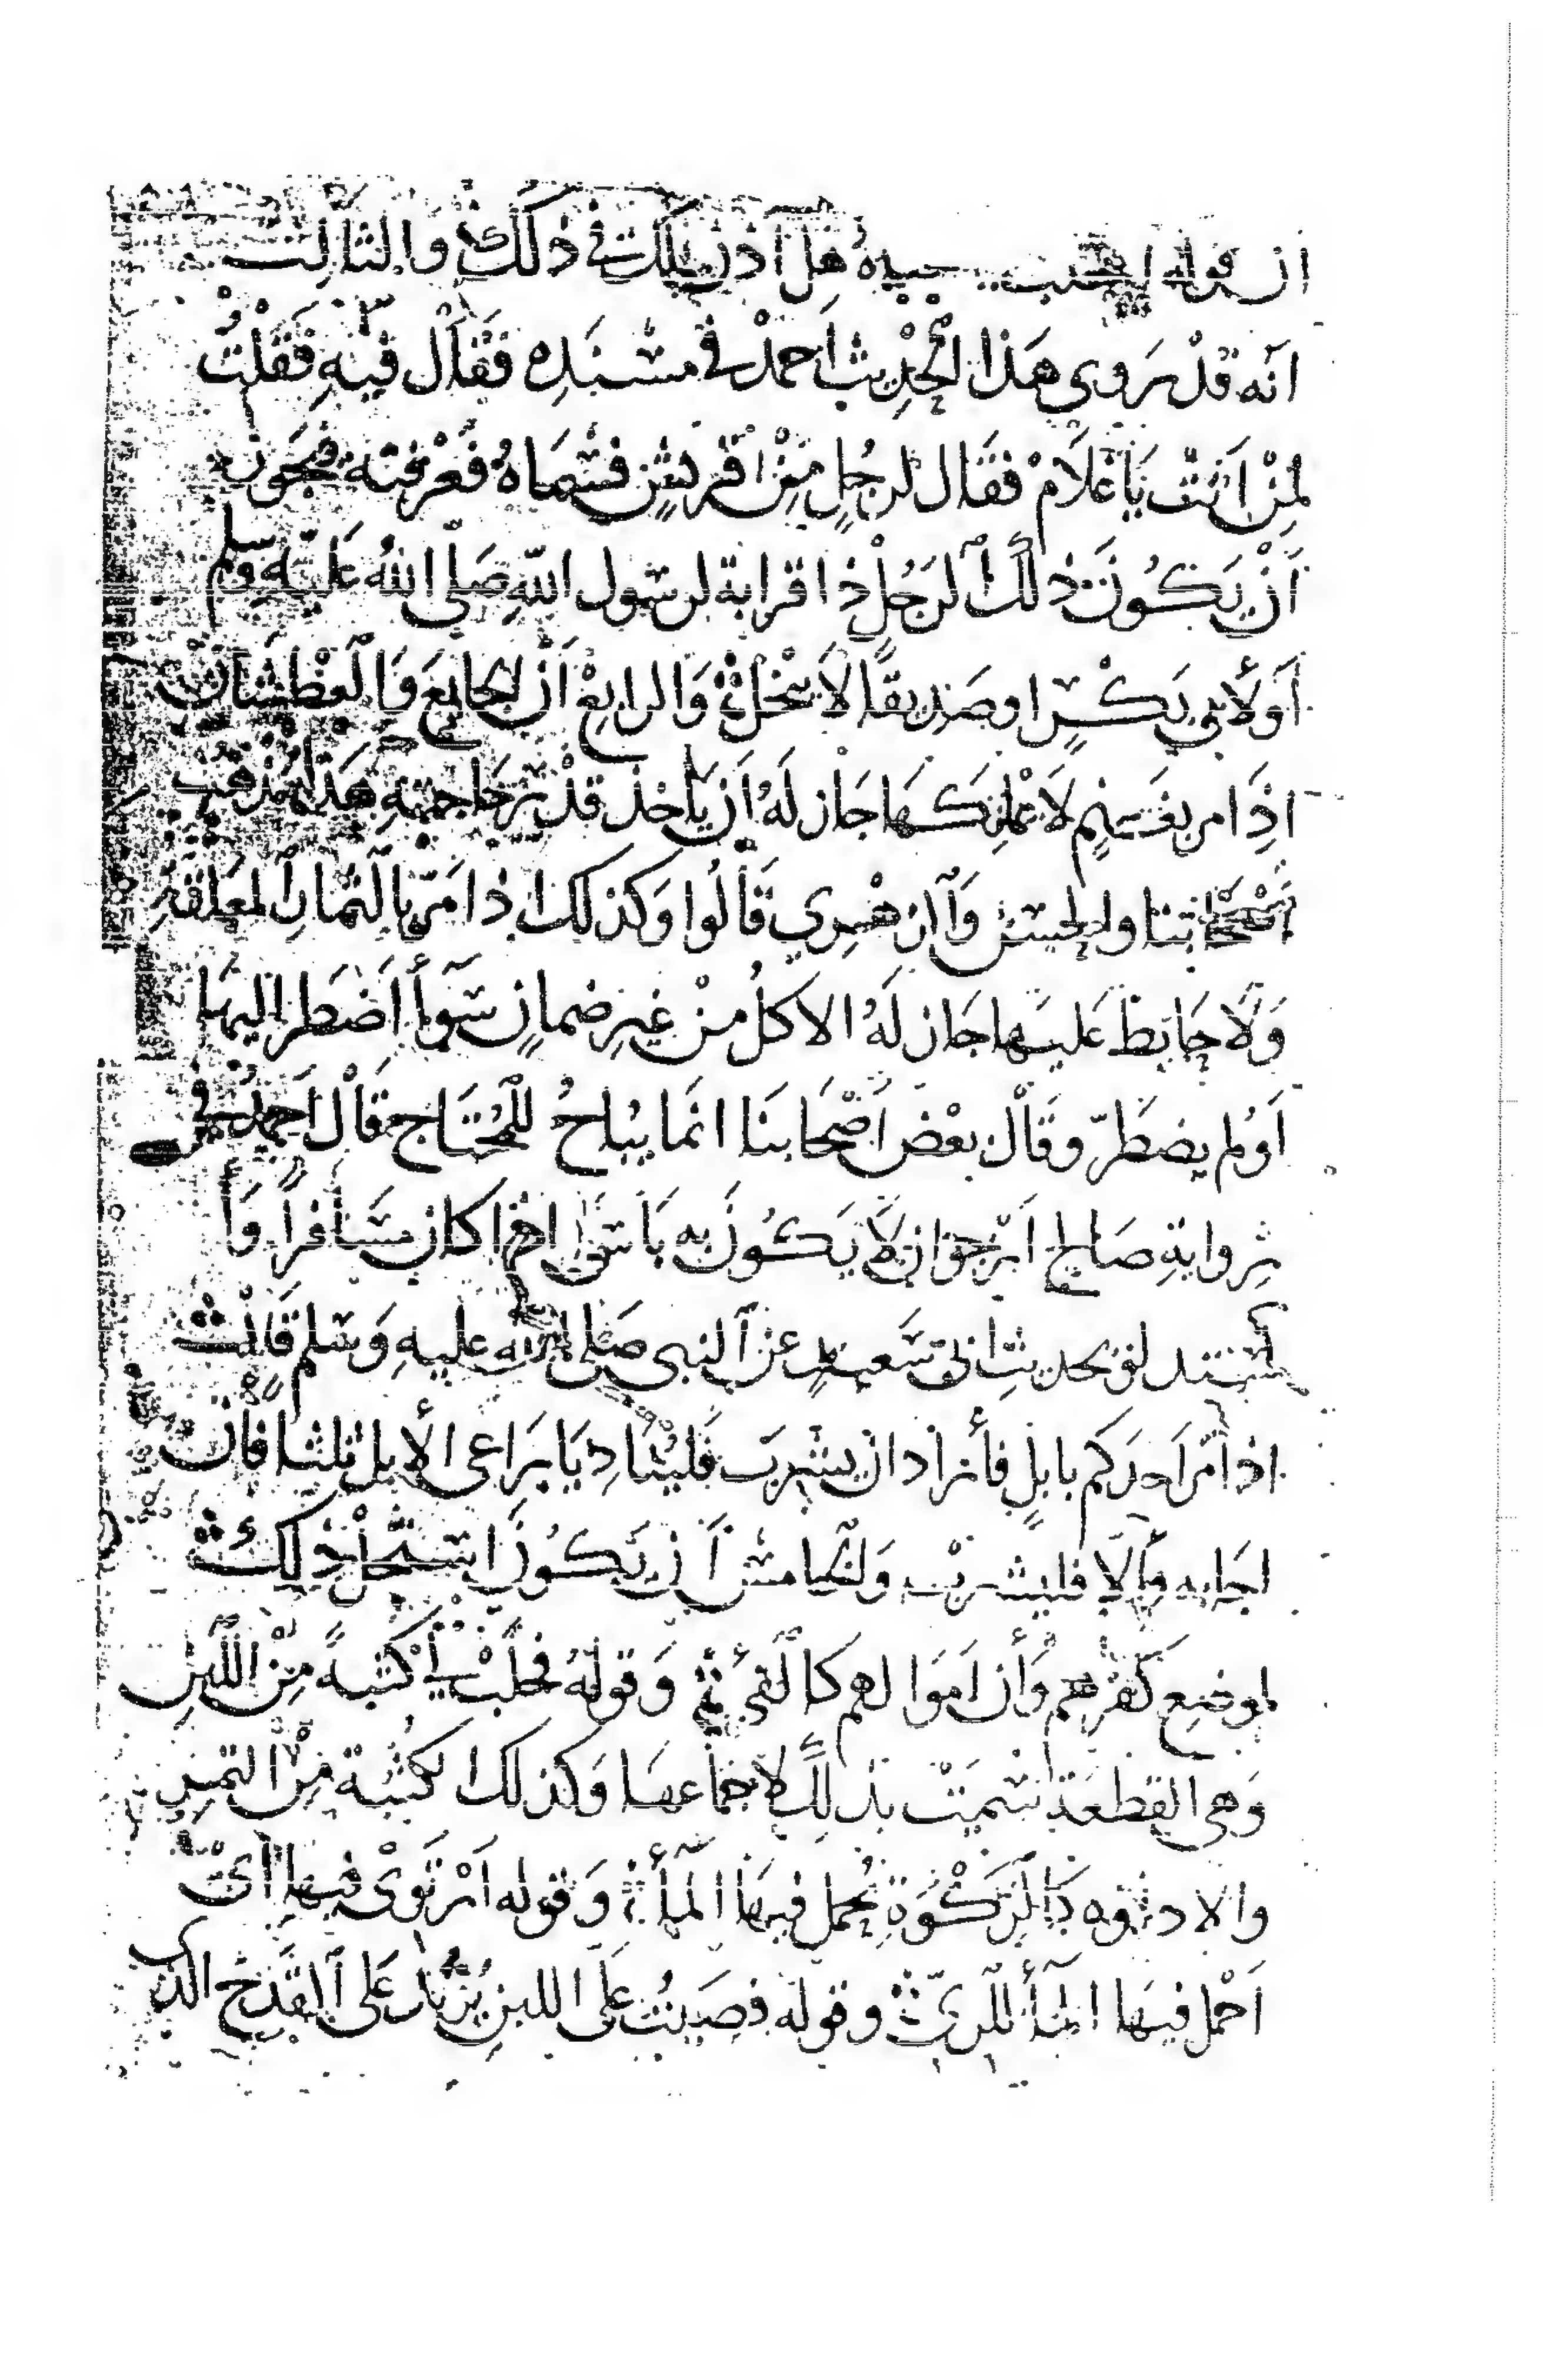 ان قوله هل آذن لك في ذلك والثالث
انه قد روى هذا الحديث احمد في مسنده فقال فيه فقلت
لمن انت يا غلام فقال لرجل من قريش فسماه فعرفته فيجوز
أن يكون ذلك الرجل ذا قرابة لرسول الله صلى الله عليه وسلم
أو لأبي بكر او صديقا لا يبخل والرابع أن الجايع والعطشان
إذا مر بغنم لا يملكها جاز له أن ياخذ قدر حاجته هذا مذهب
أصحابنا والحسن والزهري قالوا وكذلك اذا مر بالثمار المعلقة
ولا حايط عليها جاز له الاكل من غير ضمان سوأ اضطر اليها
أو لم يضطر وقال بعض أصحابنا انما يباح للمحتاج قال احمد في
رواية صالح ارجوا ان لا يكون به باس اذا كان مسافرا وا
ستند لنو بحديث ابي سعيد عن النبي صلى الله عليه وسلم قال
اذا مر احدكم بابل فأراد ان يشرب فليناد يا راعى الإبل ثلثا فان
اجابه والا فليشرب والخامس أن يكون استحل ذلك
لموضع كفرهم وأن اموالهم كالفئ وقوله فحلب لي كثبة من اللبن
وهى القطعة سميت بذلك لاجتماعها وكذلك الكثبة من التمر
والادوه كالركوة يحمل فيها المأ وقوله ارتوى فيها اي
احمل فيها المأ للري وقوله فصببت على اللبن يريد على القدح الذي